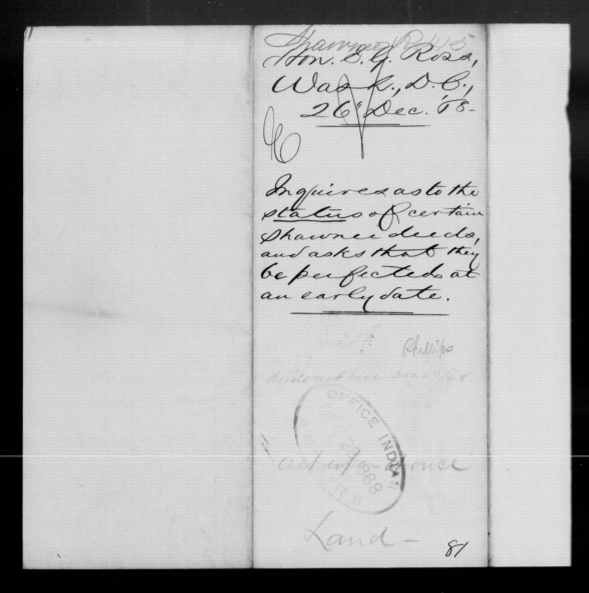 Shawnee R 415
Hon. E. G. Ross,
Wash., D.C.,
26" Dec. '68-
Inquires as to the
status of certain
Shawnee deeds,
and asks that they
be perfected at
an early date.
Phillips
deeds not here
OFFICE INDIAN
DEC 1868
at once
Land -
81